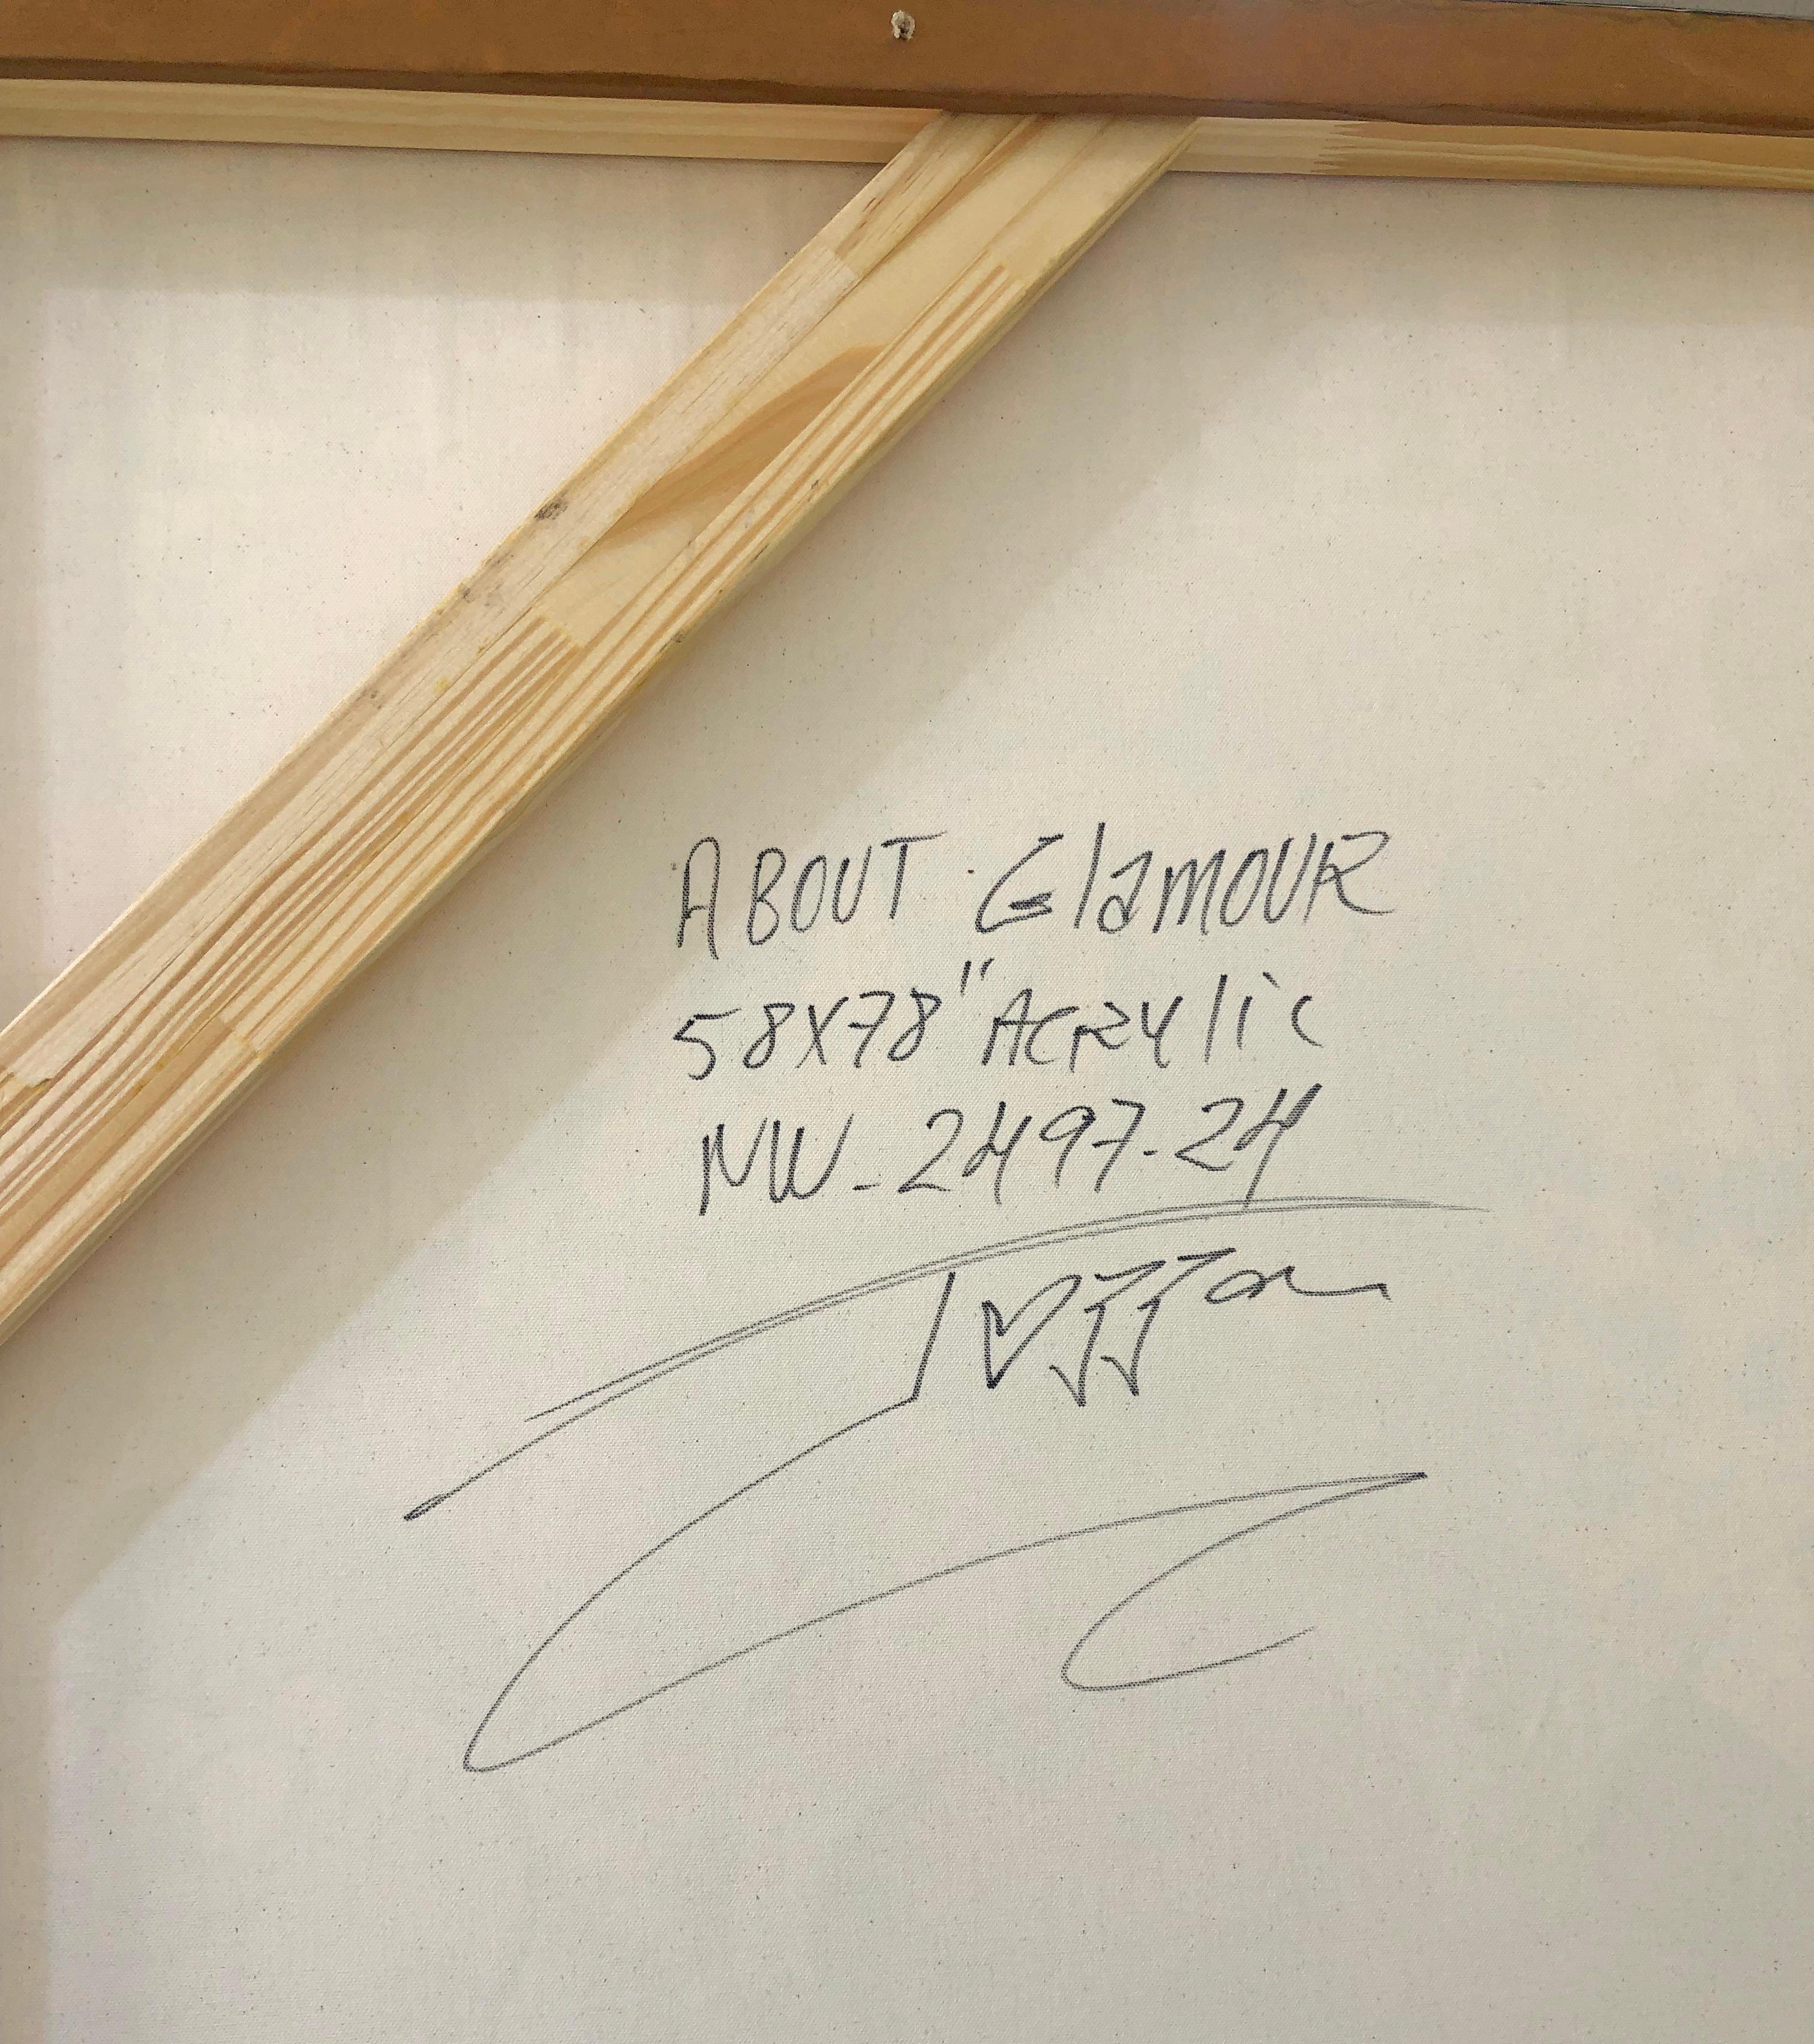 ABOUT GlaMOUR
58X78" ACRYlic
NW-2497-24